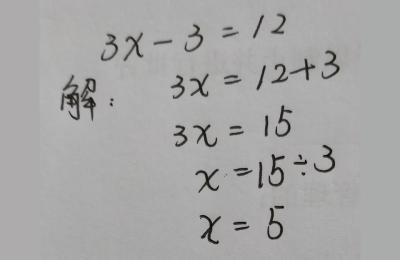 3x - 3 = 12
解: 3x = 12 + 3
3x = 15
x = 15 ÷ 3
x = 5